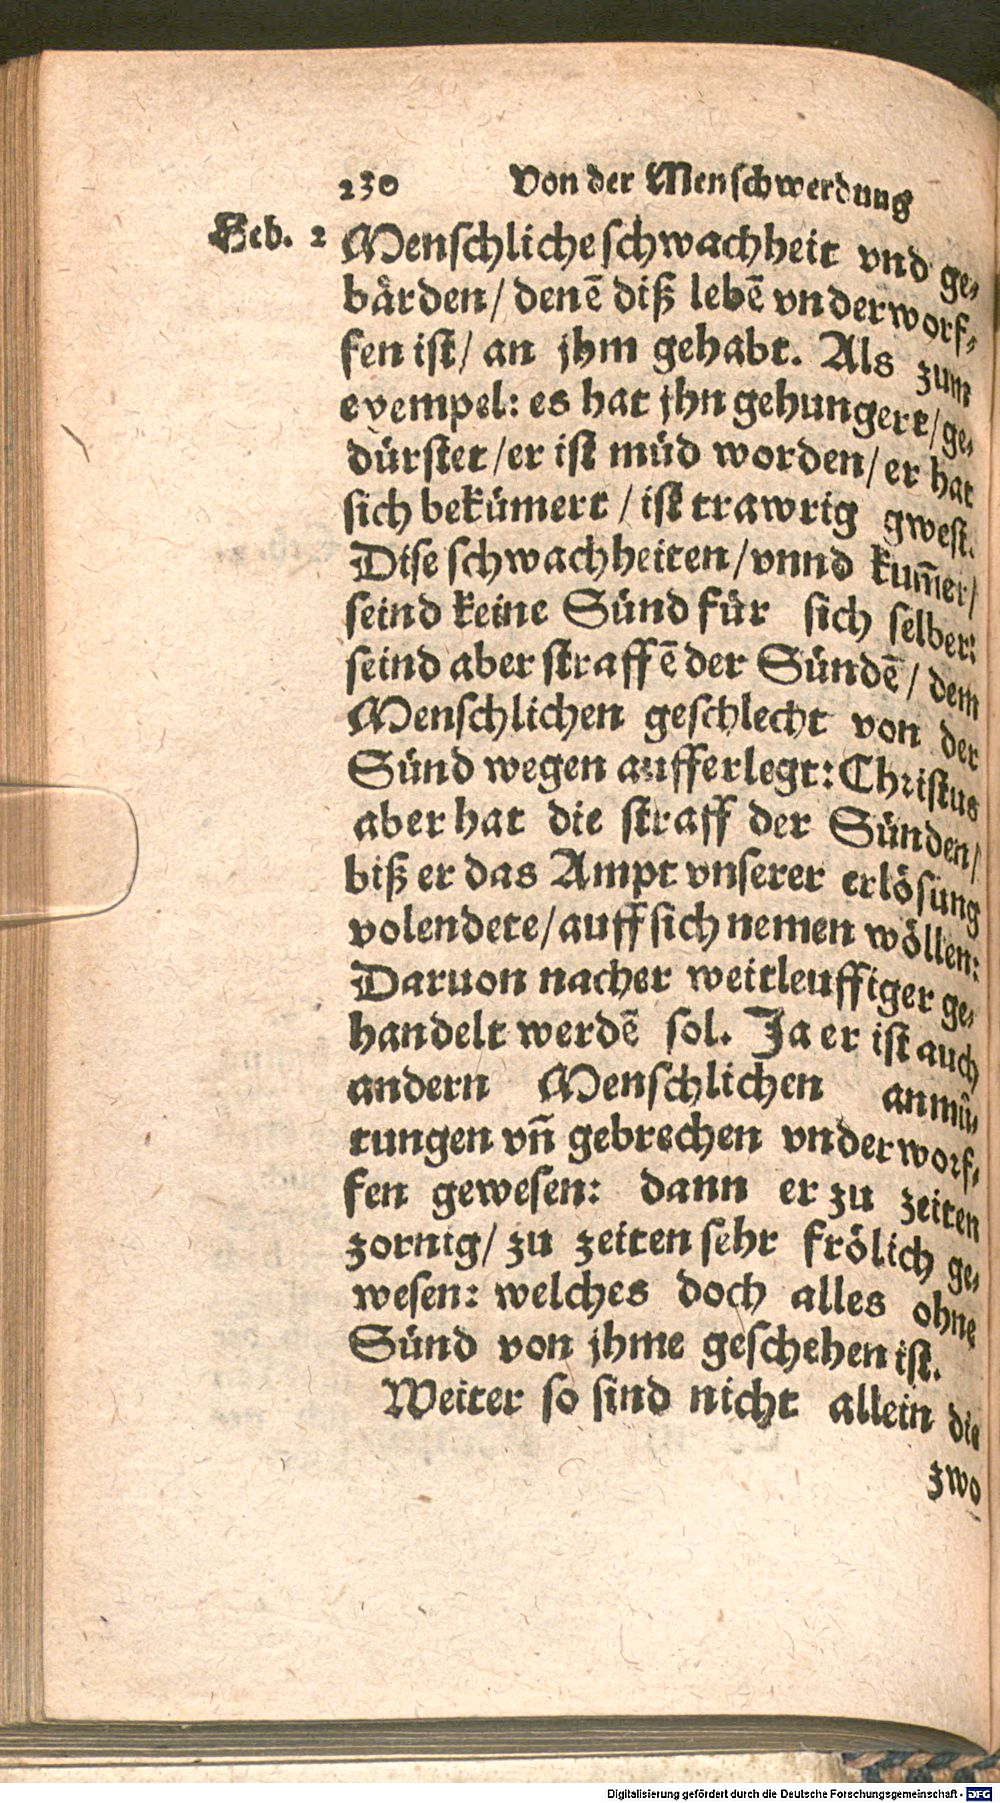 230 Von der Menschwerdung
Heb. 2 Menschliche schwachheit vnd ge-
bärden/ denē diß lebē vnderworf-
fen ist/ an jhm gehabt. Als zum
exempel: es hat jhn gehungert/ ge-
dürstet/ er ist müd worden/ er hat
sich bekümert/ ist trawrig gwest.
Dise schwachheiten/ vnnd kum̄er/
seind keine Sünd für sich selber:
seind aber straffē der Sündē/ dem
Menschlichen geschlecht von der
Sünd wegen aufferlegt: Christus
aber hat die straff der Sünden/
biß er das Ampt vnserer erlösung
volendete/ auff sich nemen wöllen:
Daruon nacher weitleuffiger ge-
handelt werdē sol. Ja er ist auch
andern Menschlichen anmü-
tungen vn̄ gebrechen vnderworf-
fen gewesen: dann er zu zeiten
zornig/ zu zeiten sehr frölich ge-
wesen: welches doch alles ohne
Sünd von jhme geschehen ist.
Weiter so sind nicht allein die
zwo
Digitalisierung gefördert durch die Deutsche Forschungsgemeinschaft - DFG